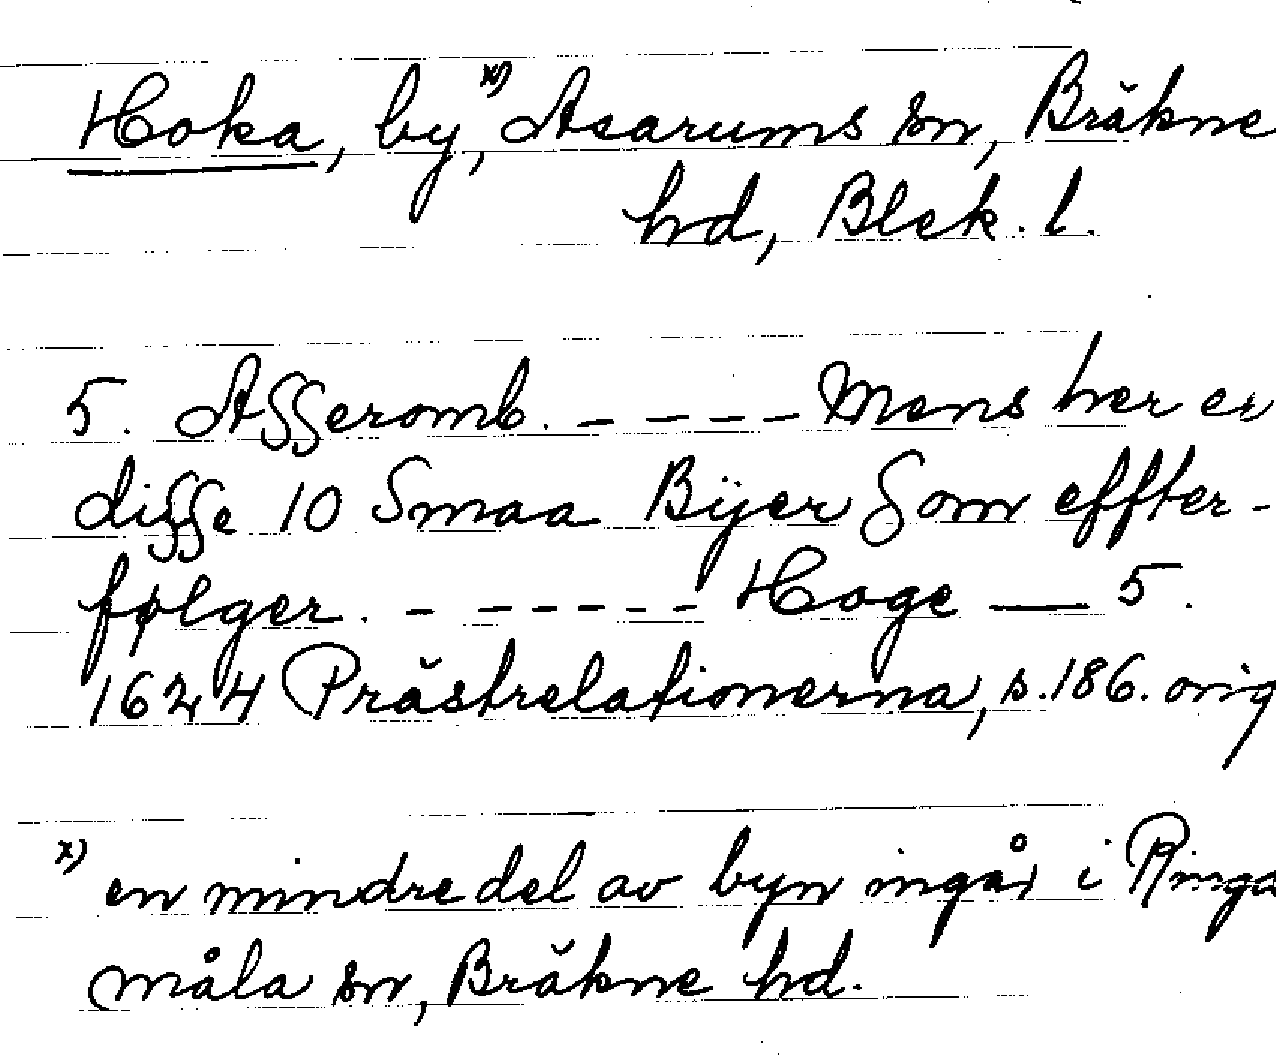 Hoka, by,x) Asarums sn, Bräkne
hd, Blek. l.
5. Asseromb. - - - - Mens her er
disse 10 Smaa Bÿer som effter-
følger. - - - - - - Hoge — 5.
1624 Prästrelationerna, s. 186. orig
x) en mindre del av byn ingår i Ringa
måla sn, Bräkne hd.